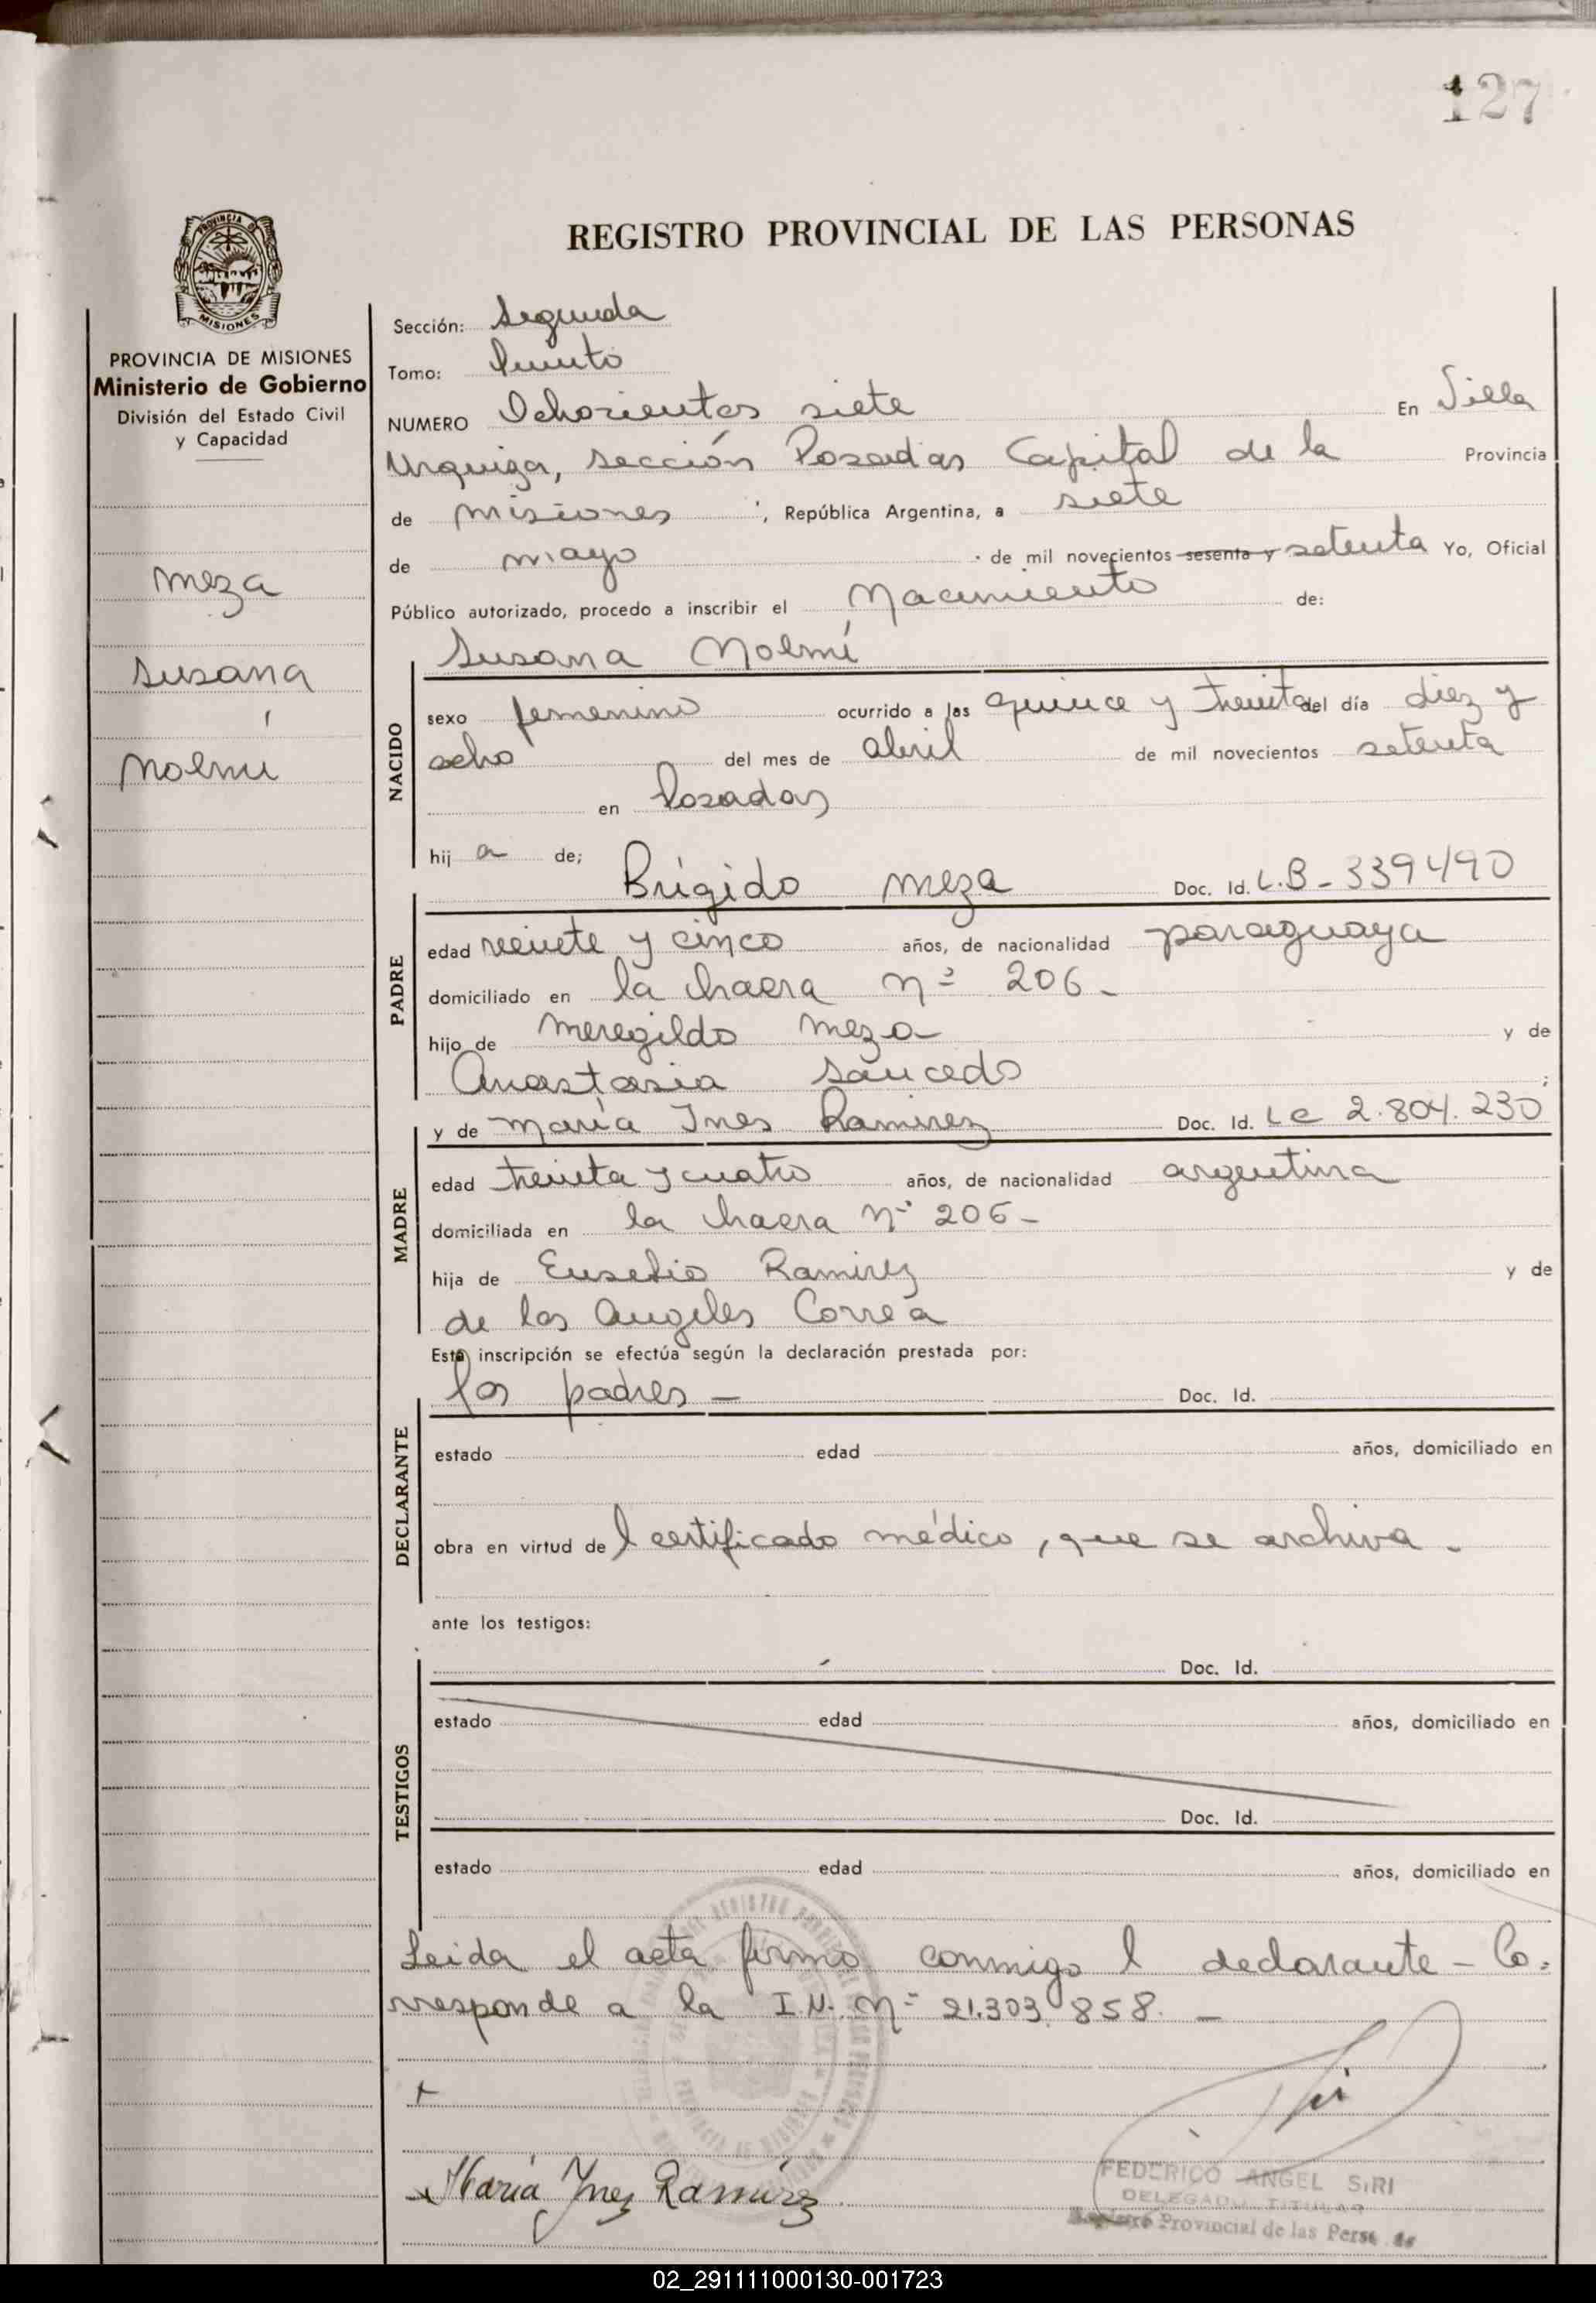 127
PROVINCIA DE MISIONES
REGISTRO PROVINCIAL DE LAS PERSONAS
PROVINCIA DE MISIONES
Ministerio de Gobierno
División del Estado Civil
y Capacidad
Meza
Susana
Noemí
Sección: Segunda
Tomo: Quinto
NUMERO Ochocientos siete En Villa
Urquiza, sección Posadas Capital de la Provincia
de Misiones, República Argentina, a siete
de mayo de mil novecientos sesenta y setenta Yo, Oficial
Público autorizado, procedo a inscribir el Nacimiento de:
Susana Noemí
NACIDO
sexo femenino ocurrido a las quince y treinta del día diez y
ocho del mes de abril de mil novecientos setenta
en Posadas
hij a de;
Brígido Meza Doc. Id. L.B - 339490
PADRE
edad veinte y cinco años, de nacionalidad paraguaya
domiciliado en la chacra Nº 206 -
hijo de Meregildo Meza y de
Anastasia Saucedo ;
y de María Ines Ramirez Doc. Id. Lc 2.804.230
MADRE
edad treinta y cuatro años, de nacionalidad argentina
domiciliada en la chacra Nº 206 -
hija de Eusebio Ramirez y de
de los Angeles Correa
Esta inscripción se efectúa según la declaración prestada por:
los padres - Doc. Id.
DECLARANTE
estado edad años, domiciliado en
obra en virtud de l certificado médico, que se archiva.
ante los testigos:
Doc. Id.
TESTIGOS
estado edad años, domiciliado en
Doc. Id.
estado edad años, domiciliado en
Leida el acta firma conmigo l declarante - Co=
rresponde a la I.N. Nº 21.303.858. -
x María Ynes Ramírez
FEDERICO ANGEL SIRI
DELEGADO TITULAR
Registro Provincial de las Personas
02_291111000130-001723